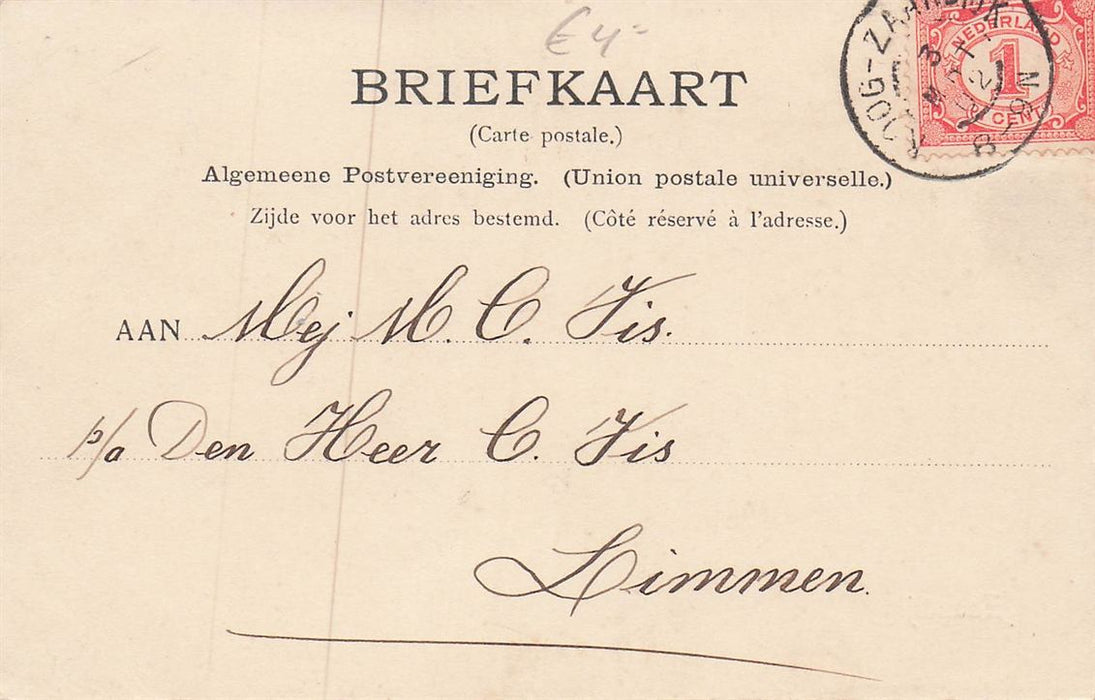 € 4=
BRIEFKAART
(Carte postale.)
Algemeene Postvereeniging. (Union postale universelle.)
Zijde voor het adres bestemd. (Côté réservé à l'adresse.)
KOOG-ZAANDIJK
NEDERLAND
1
CENT
AAN Mej M. C. Vis.
p/a Den Heer C. Vis
Limmen.